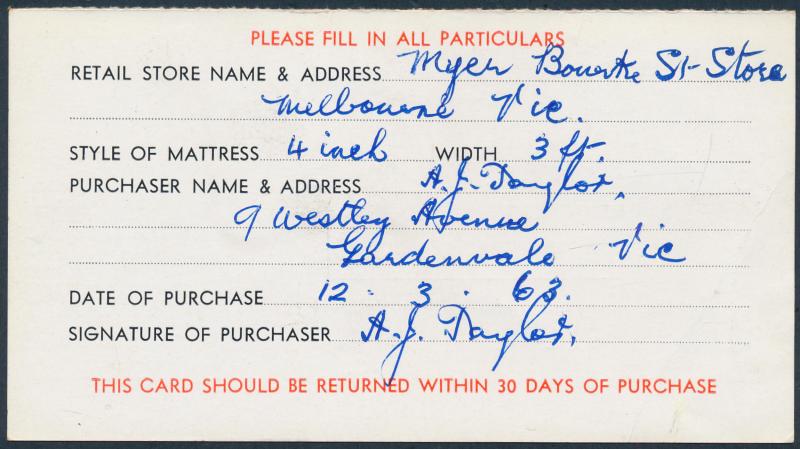 PLEASE FILL IN ALL PARTICULARS
RETAIL STORE NAME & ADDRESS Myer Bourke St Store
Melbourne Vic.
STYLE OF MATTRESS 4 inch WIDTH 3 ft.
PURCHASER NAME & ADDRESS A.J. Taylor,
9 Westley Avenue
Gardenvale Vic
DATE OF PURCHASE 12 . 3 . 63.
SIGNATURE OF PURCHASER A.J. Taylor.
THIS CARD SHOULD BE RETURNED WITHIN 30 DAYS OF PURCHASE